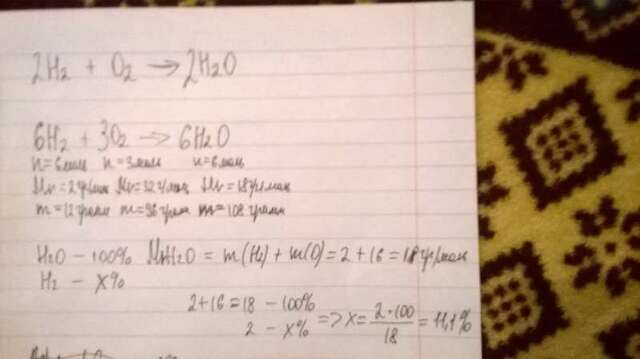 2H₂ + O₂ → 2H₂O
6H₂ + 3O₂ → 6H₂O
n=6моль n=3моль n=6моль
Mr=2гр/моль Mr=32г/моль Mr=18гр/моль
m=12грамм m=96грам m=108 грамм
H₂O – 100% MrH₂O = m(H₂) + m(O) = 2 + 16 = 18гр/моль
H₂ – X%
2+16=18 – 100%
2 – x% => X = 2·100/18 = 11,1%